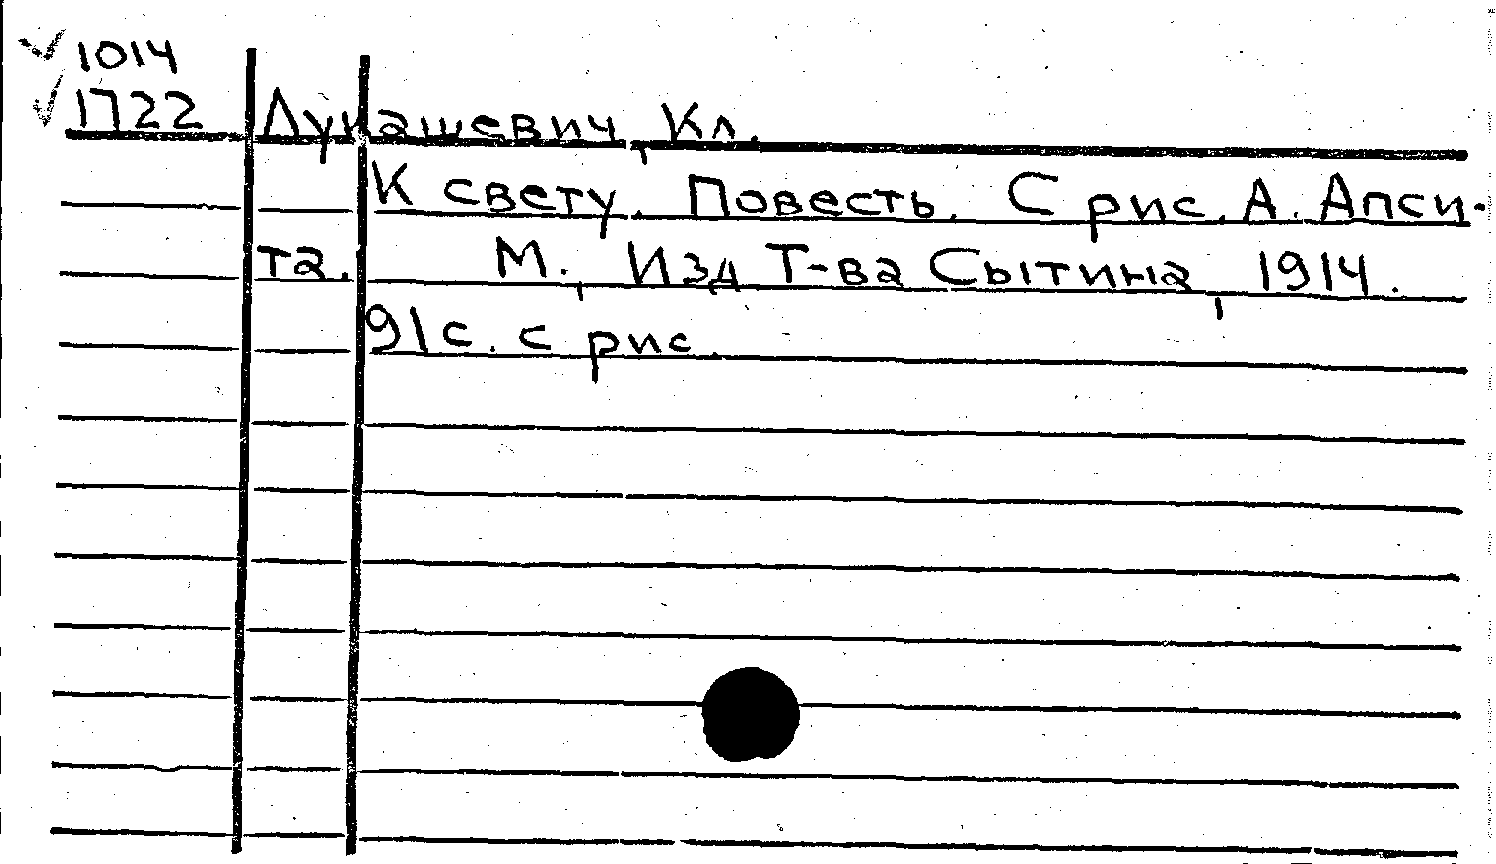 1014
1722 Лукашевич, Кл.
К свету. Повесть. С рис. А. Апси-
та. М., Изд Т-ва Сытина, 1914.
91с. с рис.